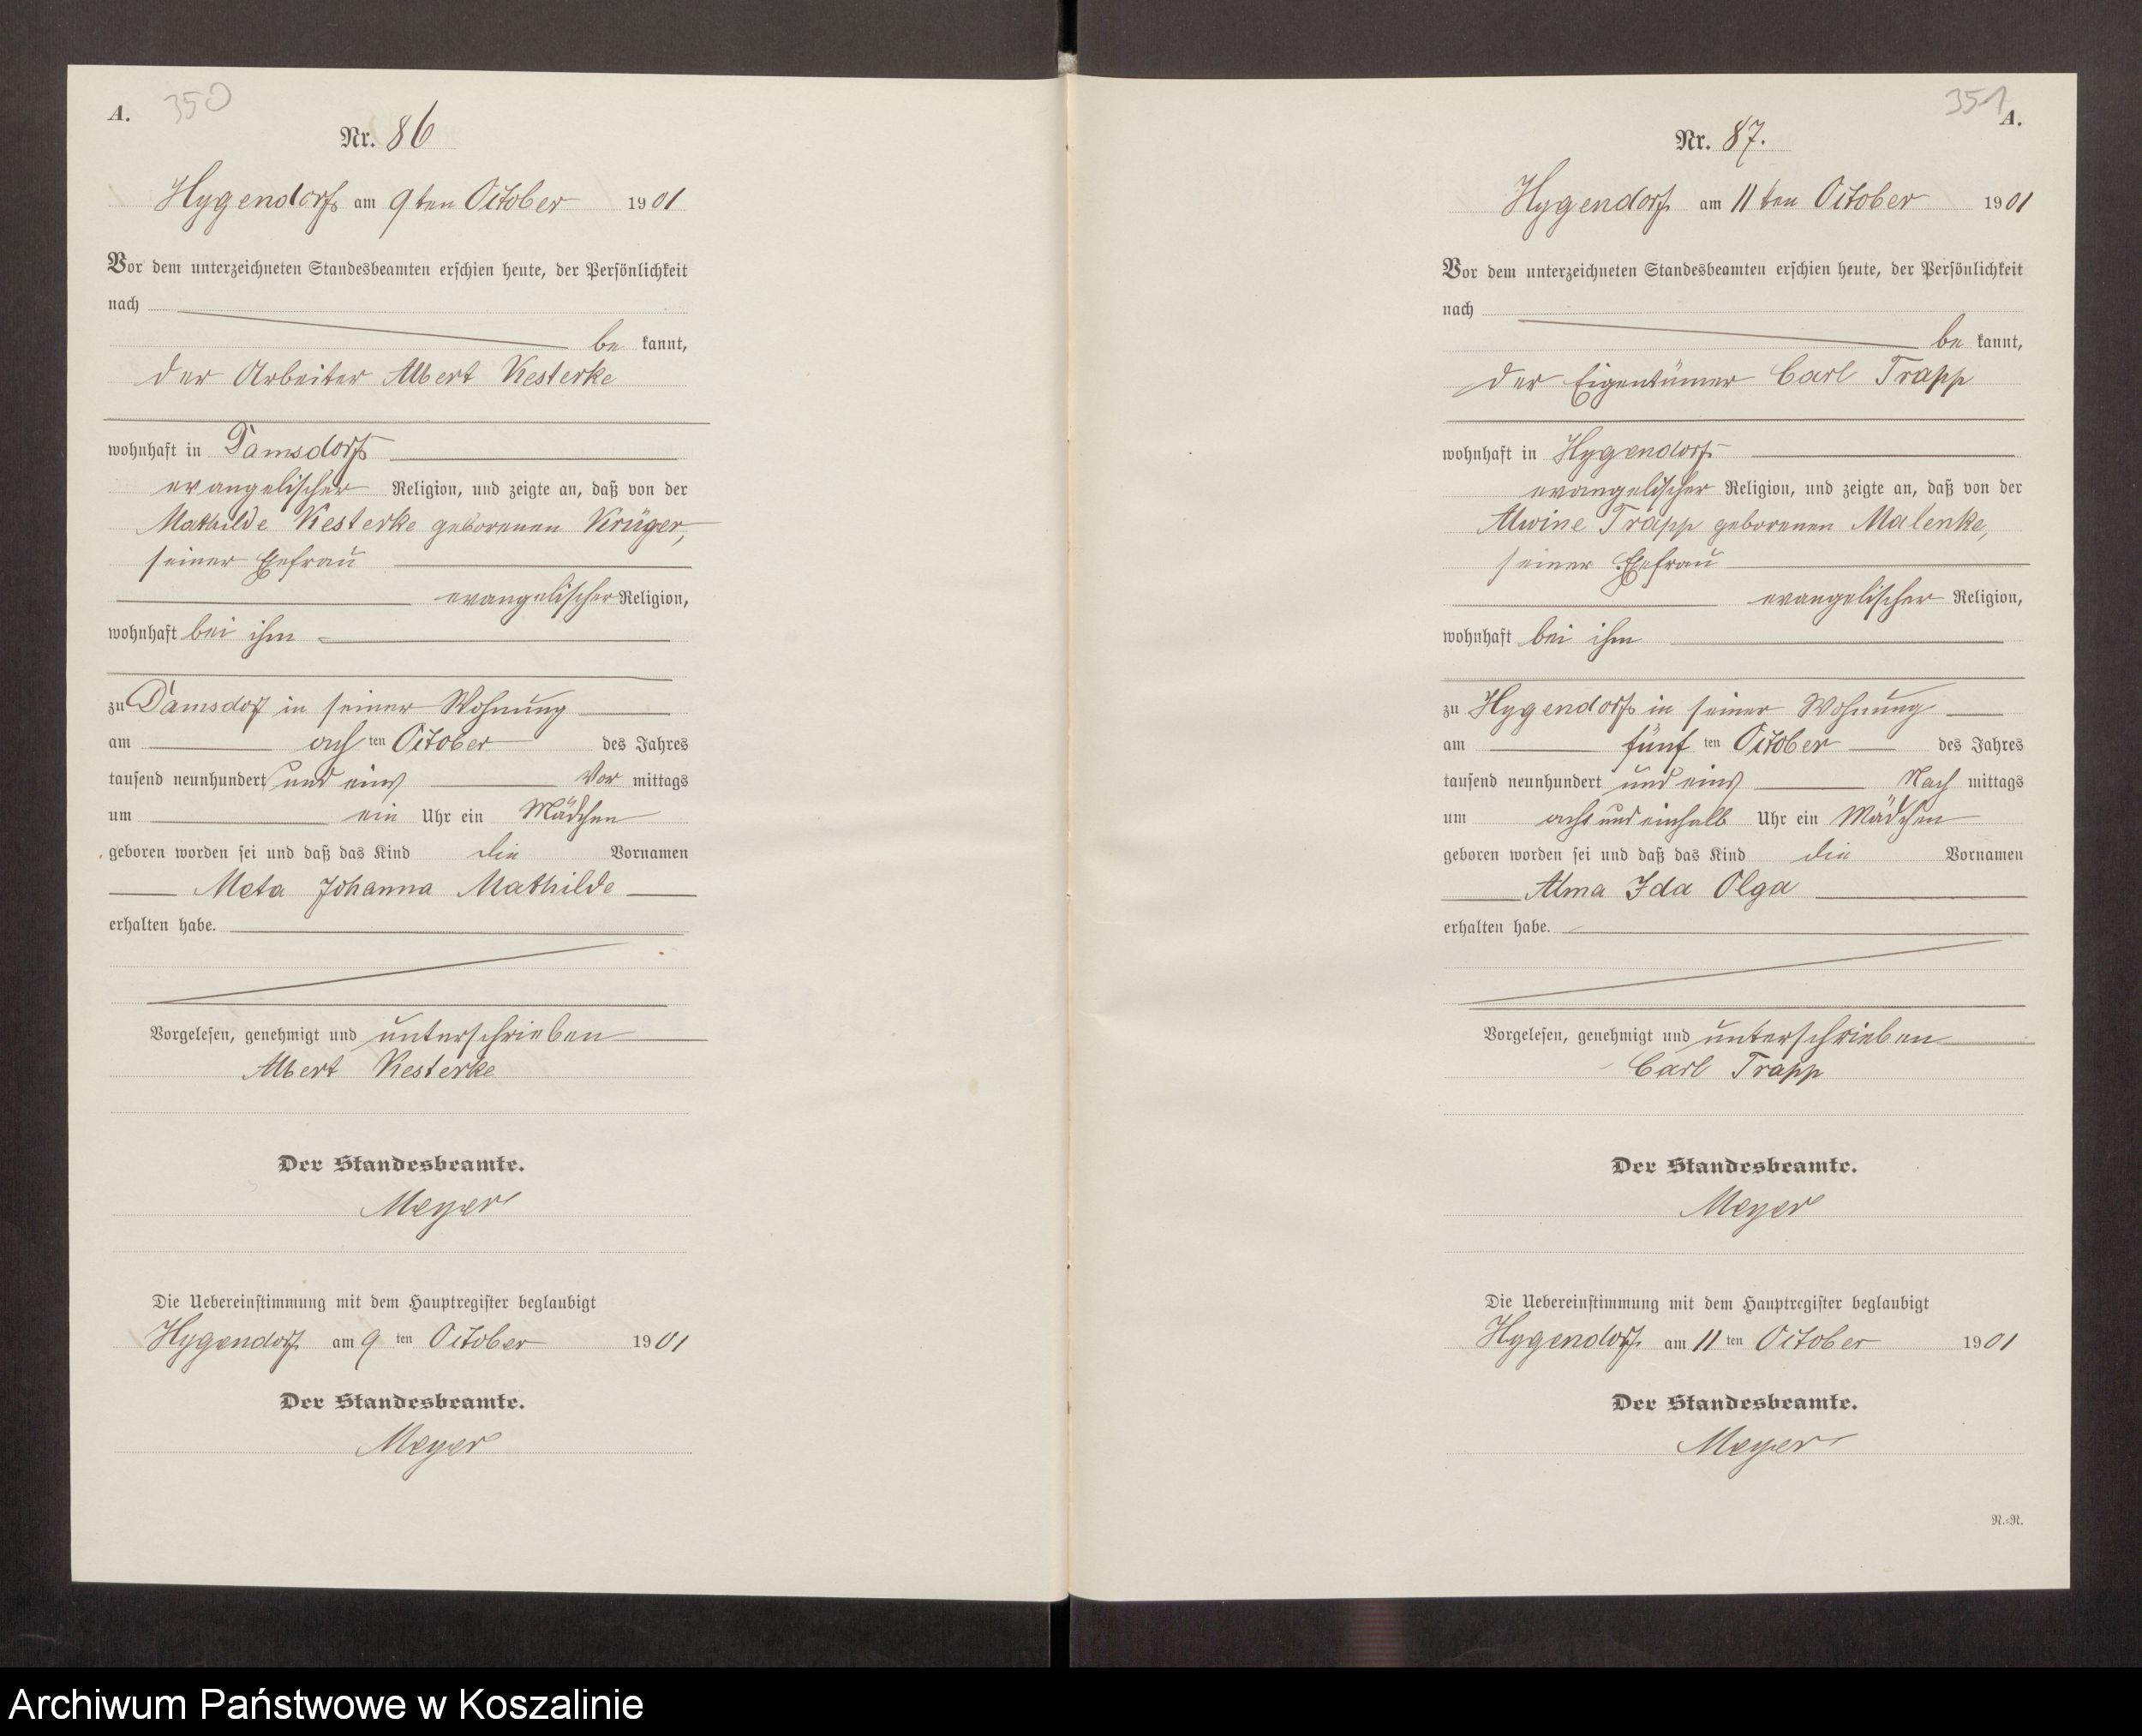 A. 350
Nr. 86
Hygendorf am 9ten October 1901
Vor dem unterzeichneten Standesbeamten erschien heute, der Persönlichkeit
nach
be kannt,
der Arbeiter Albert Kesterke
wohnhaft in Damsdorf
evangelischer Religion, und zeigte an, daß von der
Mathilde Kesterke geborenen Krüger,
seiner Ehefrau
evangelischer Religion,
wohnhaft bei ihm
zu Damsdorf in seiner Wohnung
am acht ten October des Jahres
tausend neunhundert und eins Vor mittags
um ein Uhr ein Mädchen
geboren worden sei und daß das Kind die Vornamen
Meta Johanna Mathilde
erhalten habe.
Vorgelesen, genehmigt und unterschrieben
Albert Kesterke
Der Standesbeamte.
Meyer
Die Uebereinstimmung mit dem Hauptregister beglaubigt
Hygendorf am 9 ten October 1901
Der Standesbeamte.
Meyer
351 A.
Nr. 87.
Hygendorf am 11ten October 1901
Vor dem unterzeichneten Standesbeamten erschien heute, der Persönlichkeit
nach
be kannt,
der Eigentümer Carl Trapp
wohnhaft in Hygendorf
evangelischer Religion, und zeigte an, daß von der
Alwine Trapp geborenen Malenke,
seiner Ehefrau
evangelischer Religion,
wohnhaft bei ihm
zu Hygendorf in seiner Wohnung
am fünf ten October des Jahres
tausend neunhundert und eins Nach mittags
um acht und einhalb Uhr ein Mädchen
geboren worden sei und daß das Kind die Vornamen
Alma Ida Olga
erhalten habe.
Vorgelesen, genehmigt und unterschrieben
Carl Trapp
Der Standesbeamte.
Meyer
Die Uebereinstimmung mit dem Hauptregister beglaubigt
Hygendorf am 11 ten October 1901
Der Standesbeamte.
Meyer
R.-R.
Archiwum Państwowe w Koszalinie